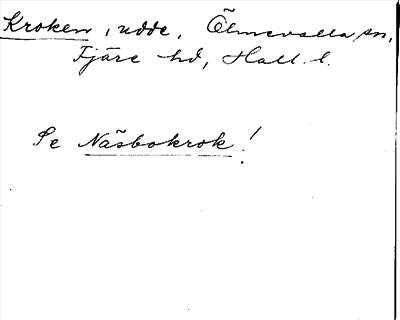 Kroken, udde, Ölmevalla sn,
Fjäre hd, Hall. l.
Se Näsbokrok!